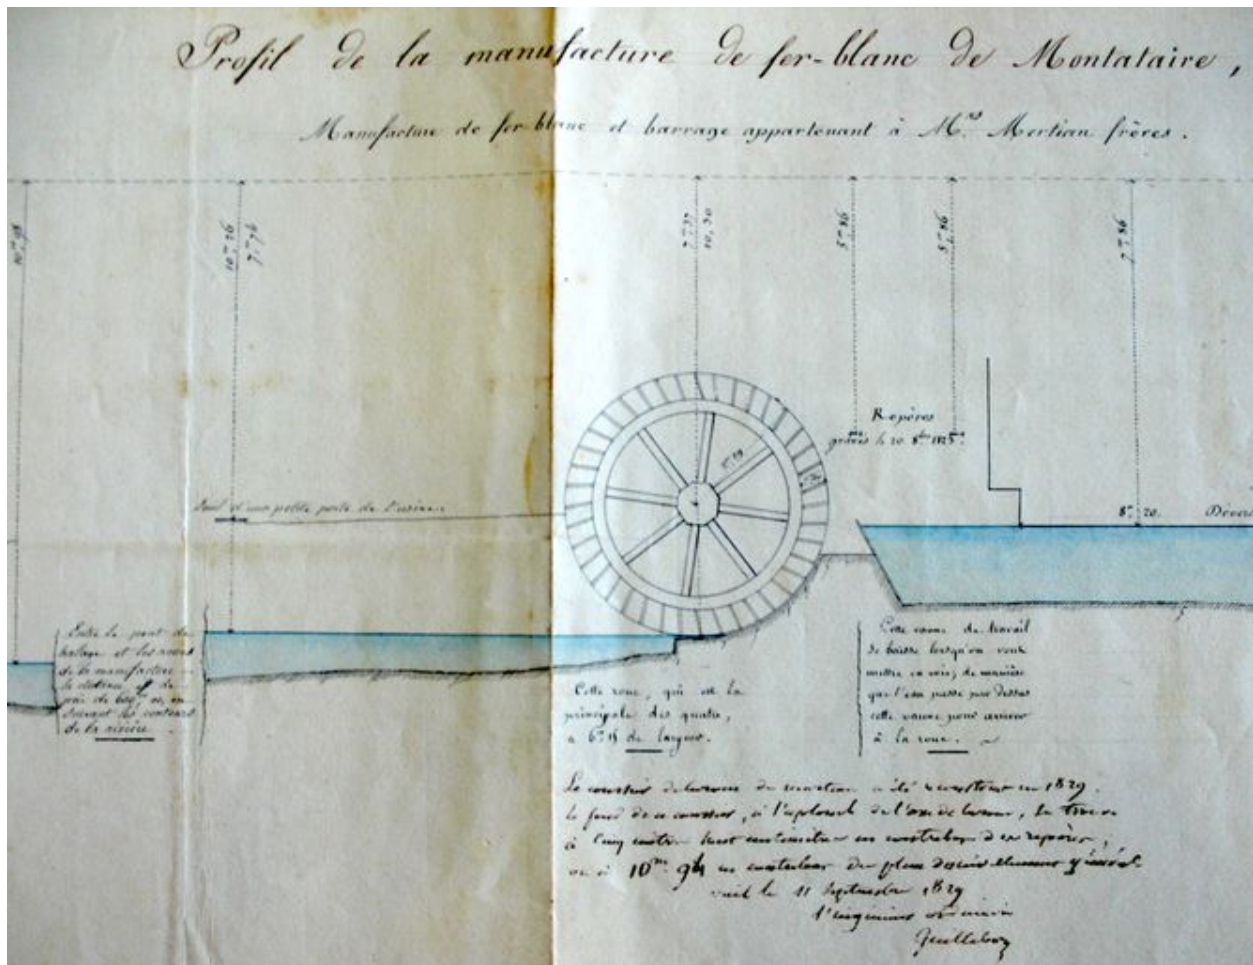 Profil de la manufacture de fer-blanc de Montataire,
Manufacture de fer blanc et barrage appartenant à M.rs Mertian frères.
10.m 98
10.m 26
7.m 74
7.m 37
10,30
5.m 86
5.m 86
7.m 86
Repères
gravés le 20 8bre 1825.
Seuil d'une petite porte de l'usine.
8.m 20. Dévers
Entre le pont de
halage et les roues
de la manufacture
la distance est de
près de en
suivant les contours
de la rivière.
Cette roue, qui est la
principale des quatre,
a 6.m 15 de largeur.
Cette vanne de travail
se baisse lorsqu'on veut
mettre en voie; de manière
que l'eau passe par dessus
cette vanne pour arriver
à la roue.
Le coursier de la roue du a été reconstruit en 1829.
le fond de ce coursier, à l'aplomb de l'axe de la roue, se trouve
à cinq mètres huit centimètres en contrebas des repères,
ou à 10m. 94 en contrebas du plan
le 11 Septembre 1829
l'ingénieur ordinaire